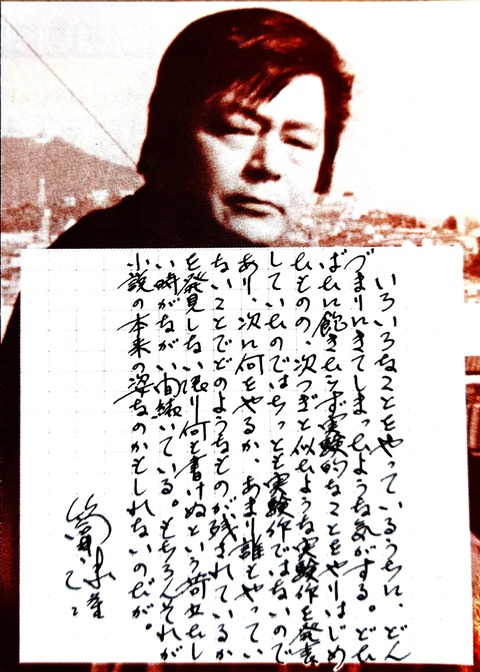 いろいろなことをやっているうちに、どん
づまりにきてしまったような気がする。どた
ばたに飽きたらず実験的なことをやりはじめ
たものの、次つぎと似たような実験作を発表
していたのではちっとも実験作ではないので
あり、次に何をやるか、あまり誰もやってい
ないことでどのようなものが残されているか
を発見しない限り何も書けぬという苛立たし
い時がながい間続いている。もちろんそれが
小説の本来の姿なのかもしれないのだが。
筒井康隆